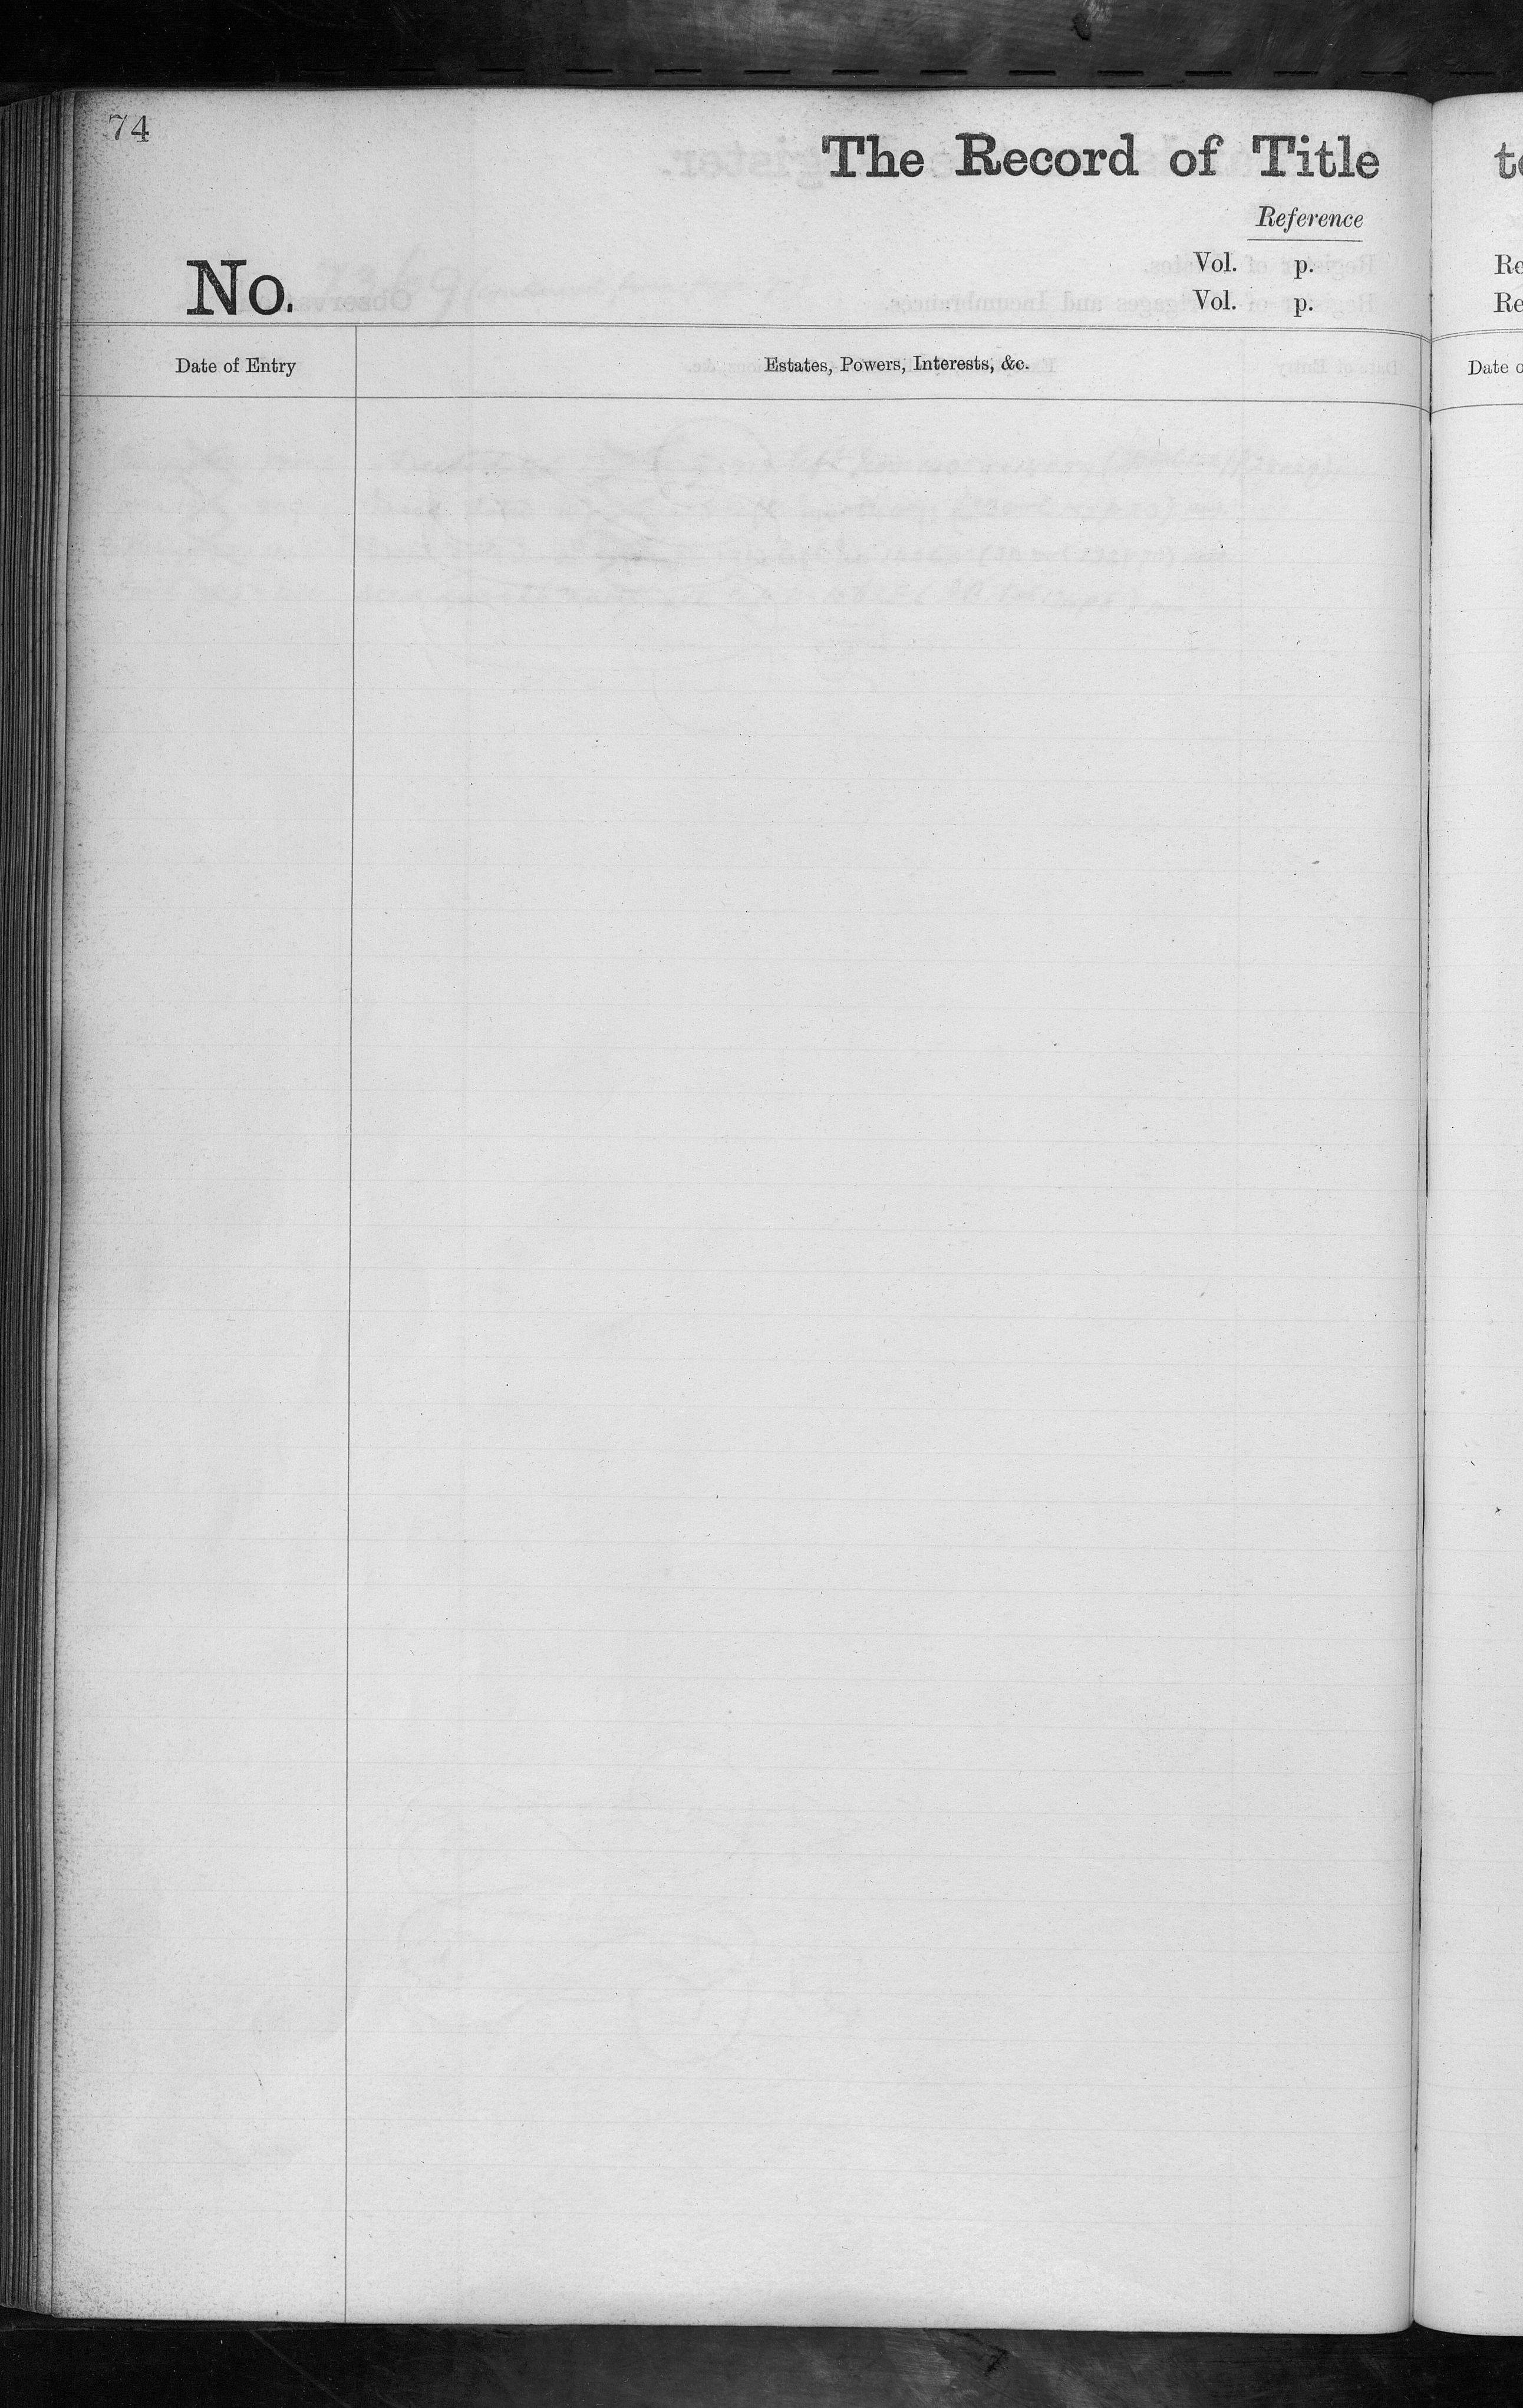 74
The Record of Title
Reference
No.
Vol. p.
Vol. p.
Date of Entry
Estates, Powers, Interests, &c.
Re
Re
Date o